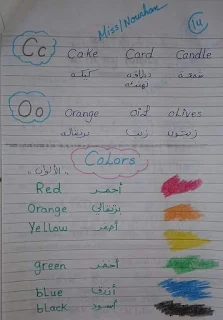 Miss/Nourhan
14
Cc Cake Card Candle
كيكة بطاقة تهنئة شمعة
Oo Orange oil olives
برتقاله زيت زيتون
Colors
,, الألوان ,,
Red أحمر
Orange برتقالى
Yellow أصفر
green أخضر
blue أزرق
black أسود